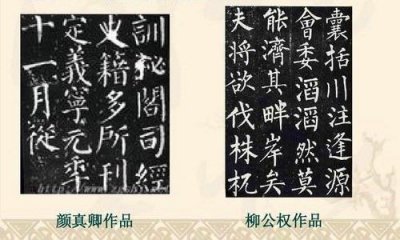 訓秘閣司經
史籍多所刊
定義寧元年
十一月從
囊括川注逢源
會委滔滔然莫
能濟其畔岸矣
夫將欲伐株杌
颜真卿作品
柳公权作品